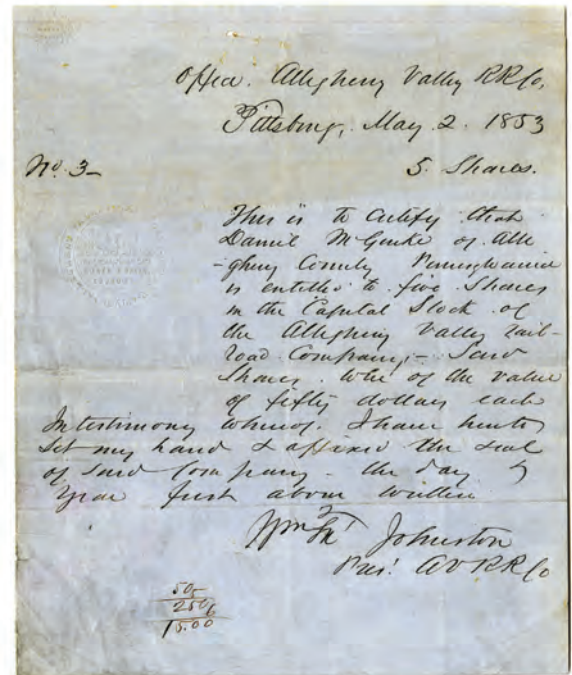 Office. Allegheny Valley RR Co,
Pittsburg, May 2. 1853
No. 3-
5 Shares.
This is to certify that
Daniel of Alle
-gheny County Pennsylvania
is entitled to five Shares
in the Capital Stock of
the Allegheny Valley rail-
road Company,- Said
Shares of the value
of fifty dollars each
In testimony whereof I have hereto
set my hand & affixed the seal
of said Company the day &
year first above written
Wm F Johnston
Pres! AVRR Co
50
250
15.00